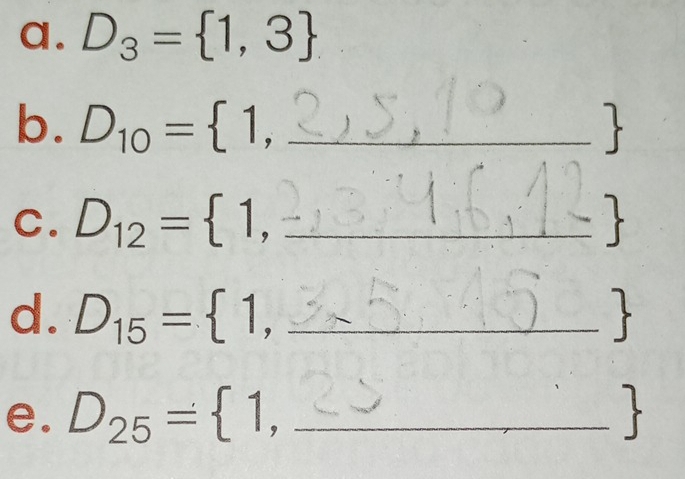 a. D₃ = {1, 3}
b. D₁₀ = { 1, 2, 5, 10 }
c. D₁₂ = { 1, 2, 3, 4, 6, 12 }
d. D₁₅ = { 1, 3, 5, 15 }
e. D₂₅ = { 1, 25 }